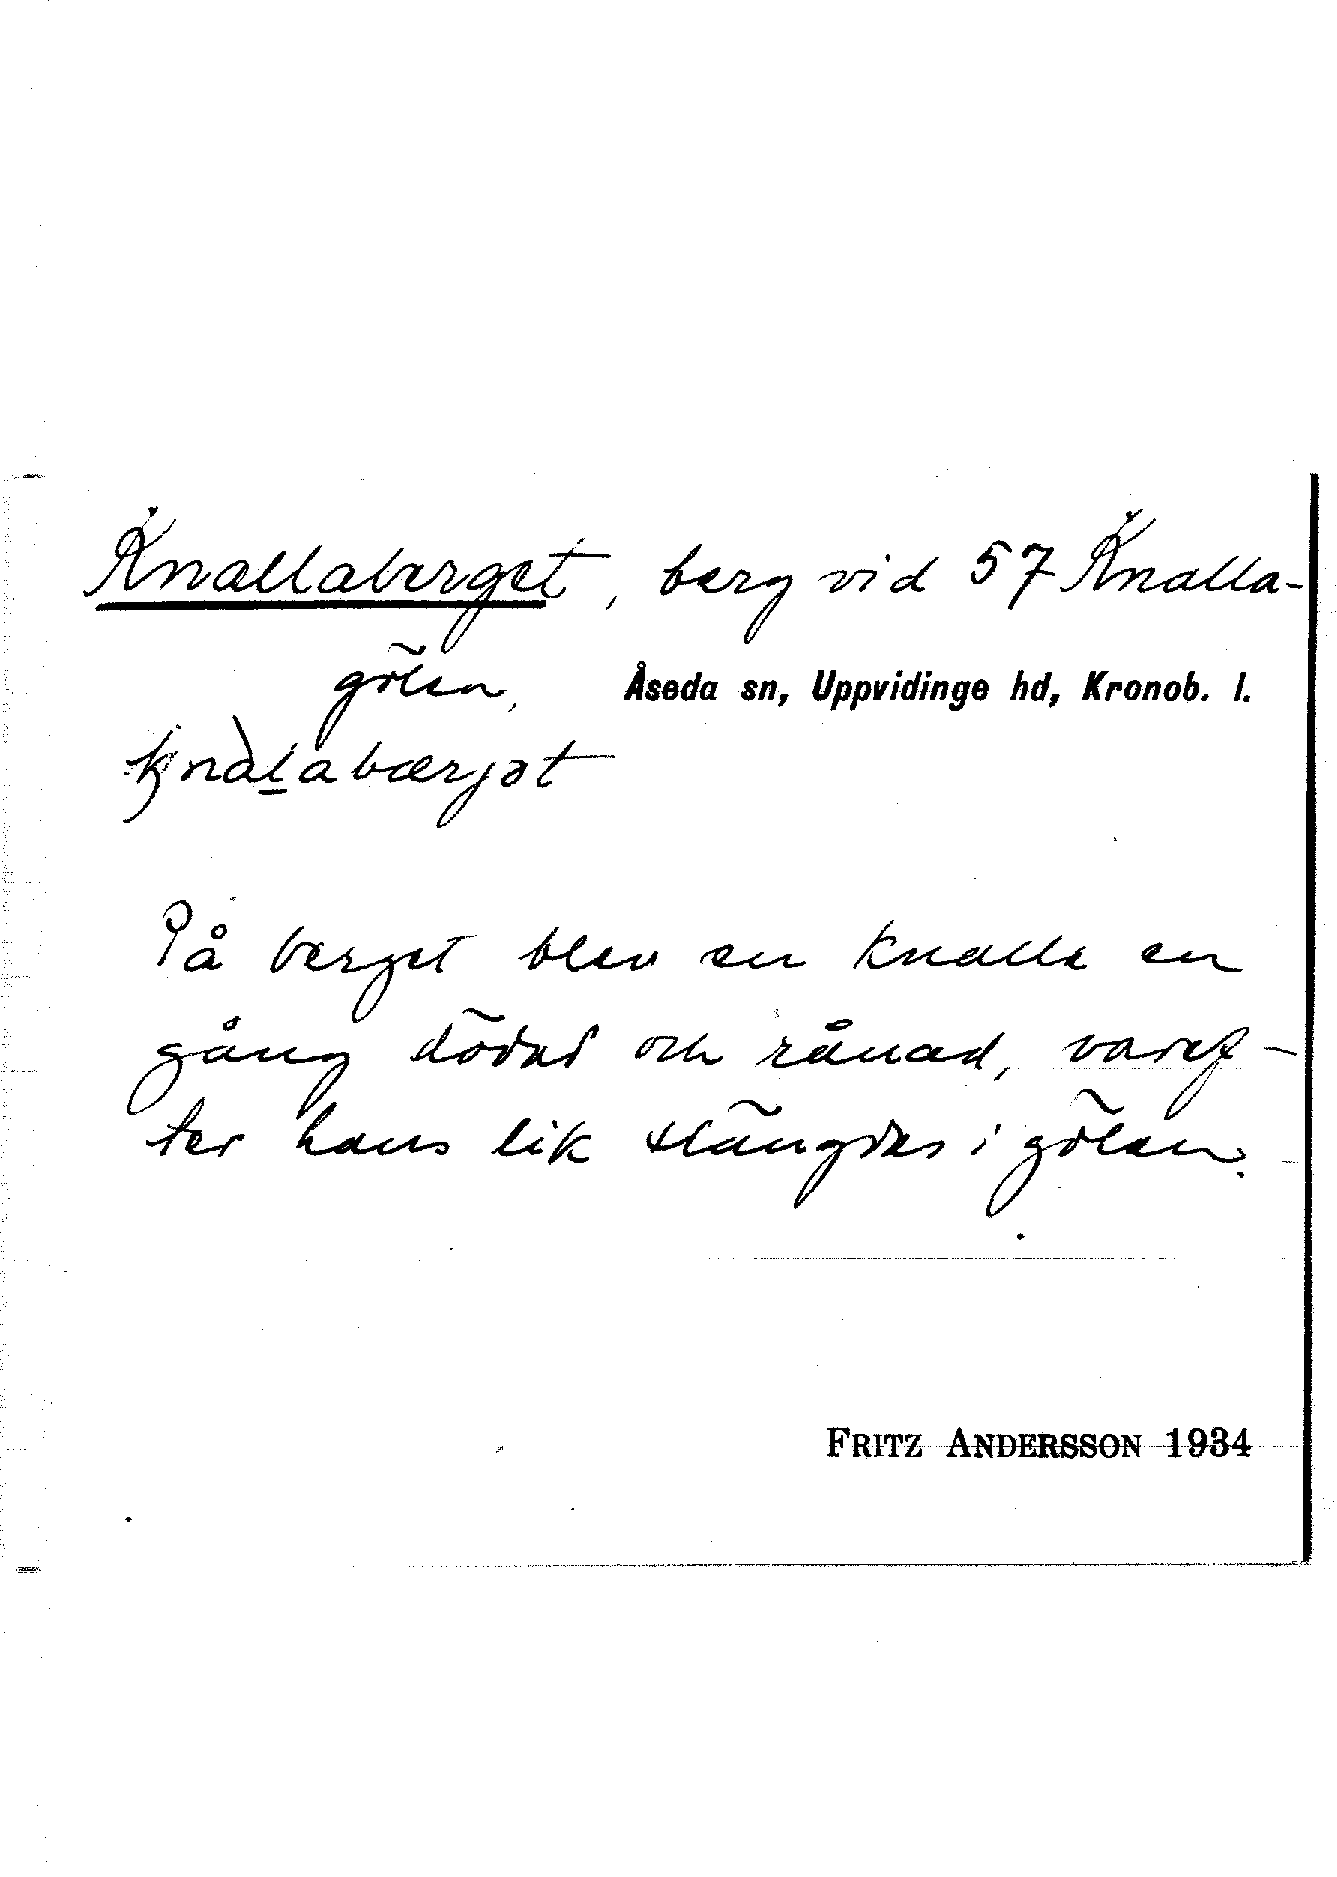 Knallaberget, berg vid 57 Knalla-
gölen, Åseda sn, Uppvidinge hd, Kronob. l.
knàlabærjət
På berget blev en knalle en
gång dödad och rånad, varef-
ter hans lik slängdes i gölen.
FRITZ ANDERSSON 1934